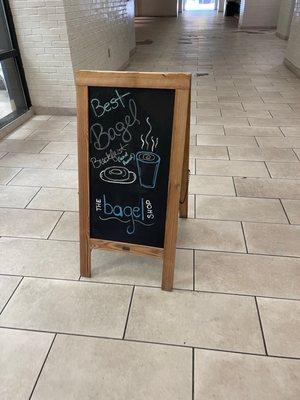 Best
Bagel
Breakfast
THE bagel SHOP